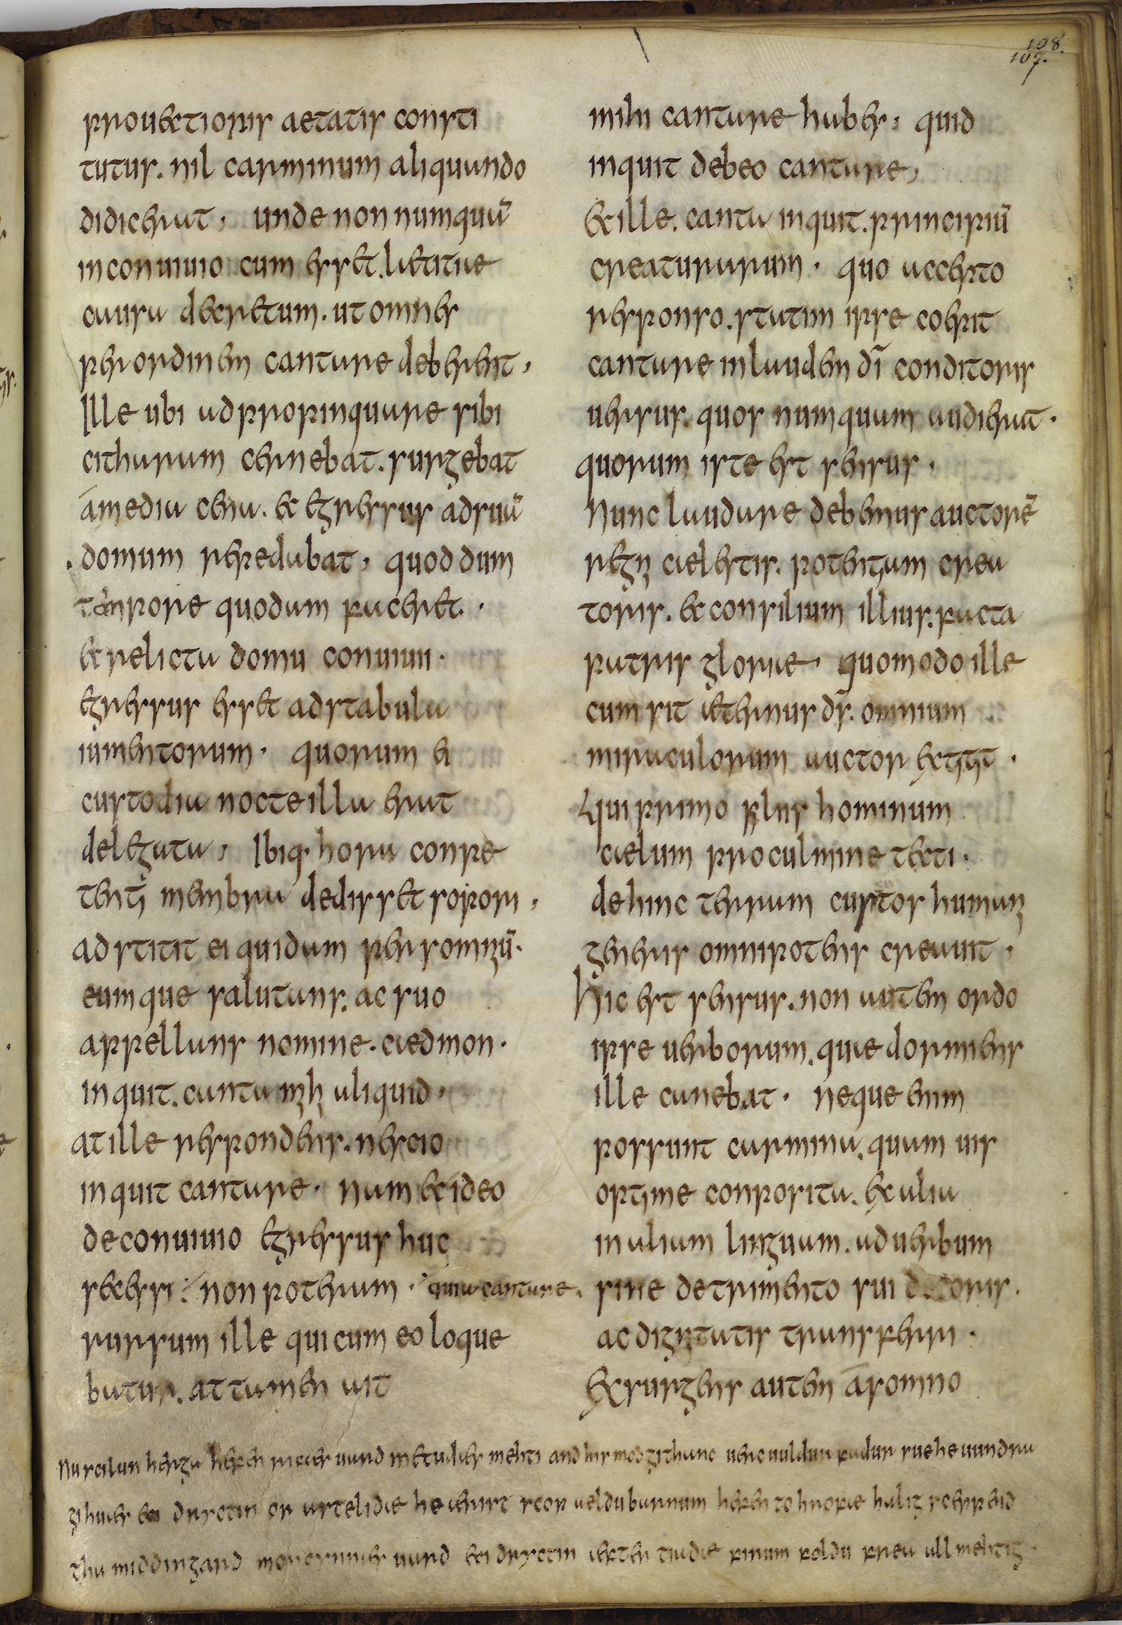 108.
107.
prouectioris aetatis consti
tutus. nil carminum aliquando
didicerat, unde non numquā
in conuiuio cum esset laetitiae
causa decretum. ut omnes
per ordinem cantare deberent,
Ille ubi adpropinquare sibi
citharam cernebat. surgebat
amedia cena. et egressus ad suā
domum repedabat, quod dum
tempore quodam faceret.
et relicta domu conuiuii.
egressus esset ad stabula
iumentorum. quorum ei
custodia nocte illa erat
delegata, Ibiq: hora conpe
tenti membra dedisset sopori,
adstitit ei quidam per somniū.
eumque salutans. ac suo
appellans nomine. caedmon.
inquit. canta mihi aliquid.
at ille respondens. nescio
inquit cantare. nam et ideo
de conuiuio egressus huc
secessi: non poteram. quia cantare.
rursum ille qui cum eo loque
batur. attamen ait
mihi cantare habes, quid
inquit debeo cantare,
et ille. canta inquit. principiū
creaturarum. quo accepto
responso. statim ipse coepit
cantare in laudem dī conditoris
uersus. quos numquam audierat.
quorum iste est sensus,
Nunc laudare debemus auctorē
regni caelestis. potentiam crea
toris. et consilium illius. facta
patris gloriae, quomodo ille
cum sit aeternus ds̄. omnium
miraculorum auctor extitit.
qui primo filiis hominum
caelum pro culmine tecti.
dehinc terram custos humani
generis omnipotens creauit,
hic est sensus. non autem ordo
ipse uerborum. quae dormiens
ille canebat. neque enim
possunt carmina. quamuis
optime conposita. ex alia
in aliam linguam. ad uerbum
sine detrimento sui decoris.
ac dignitatis transferri.
exsurgens autem āsomno
Nu scilun herga hefen ricaes uard metudaes mehti and his modgithanc uerc uuldur fadur sue he uundra
gihuaes eci dryctin or astelidae he aerist scop aeldu barnum hefen to hrofae halig sceppend
tha middingard moncynnaes uard eci dryctin aefter tiadae firum foldu frea allmehtig